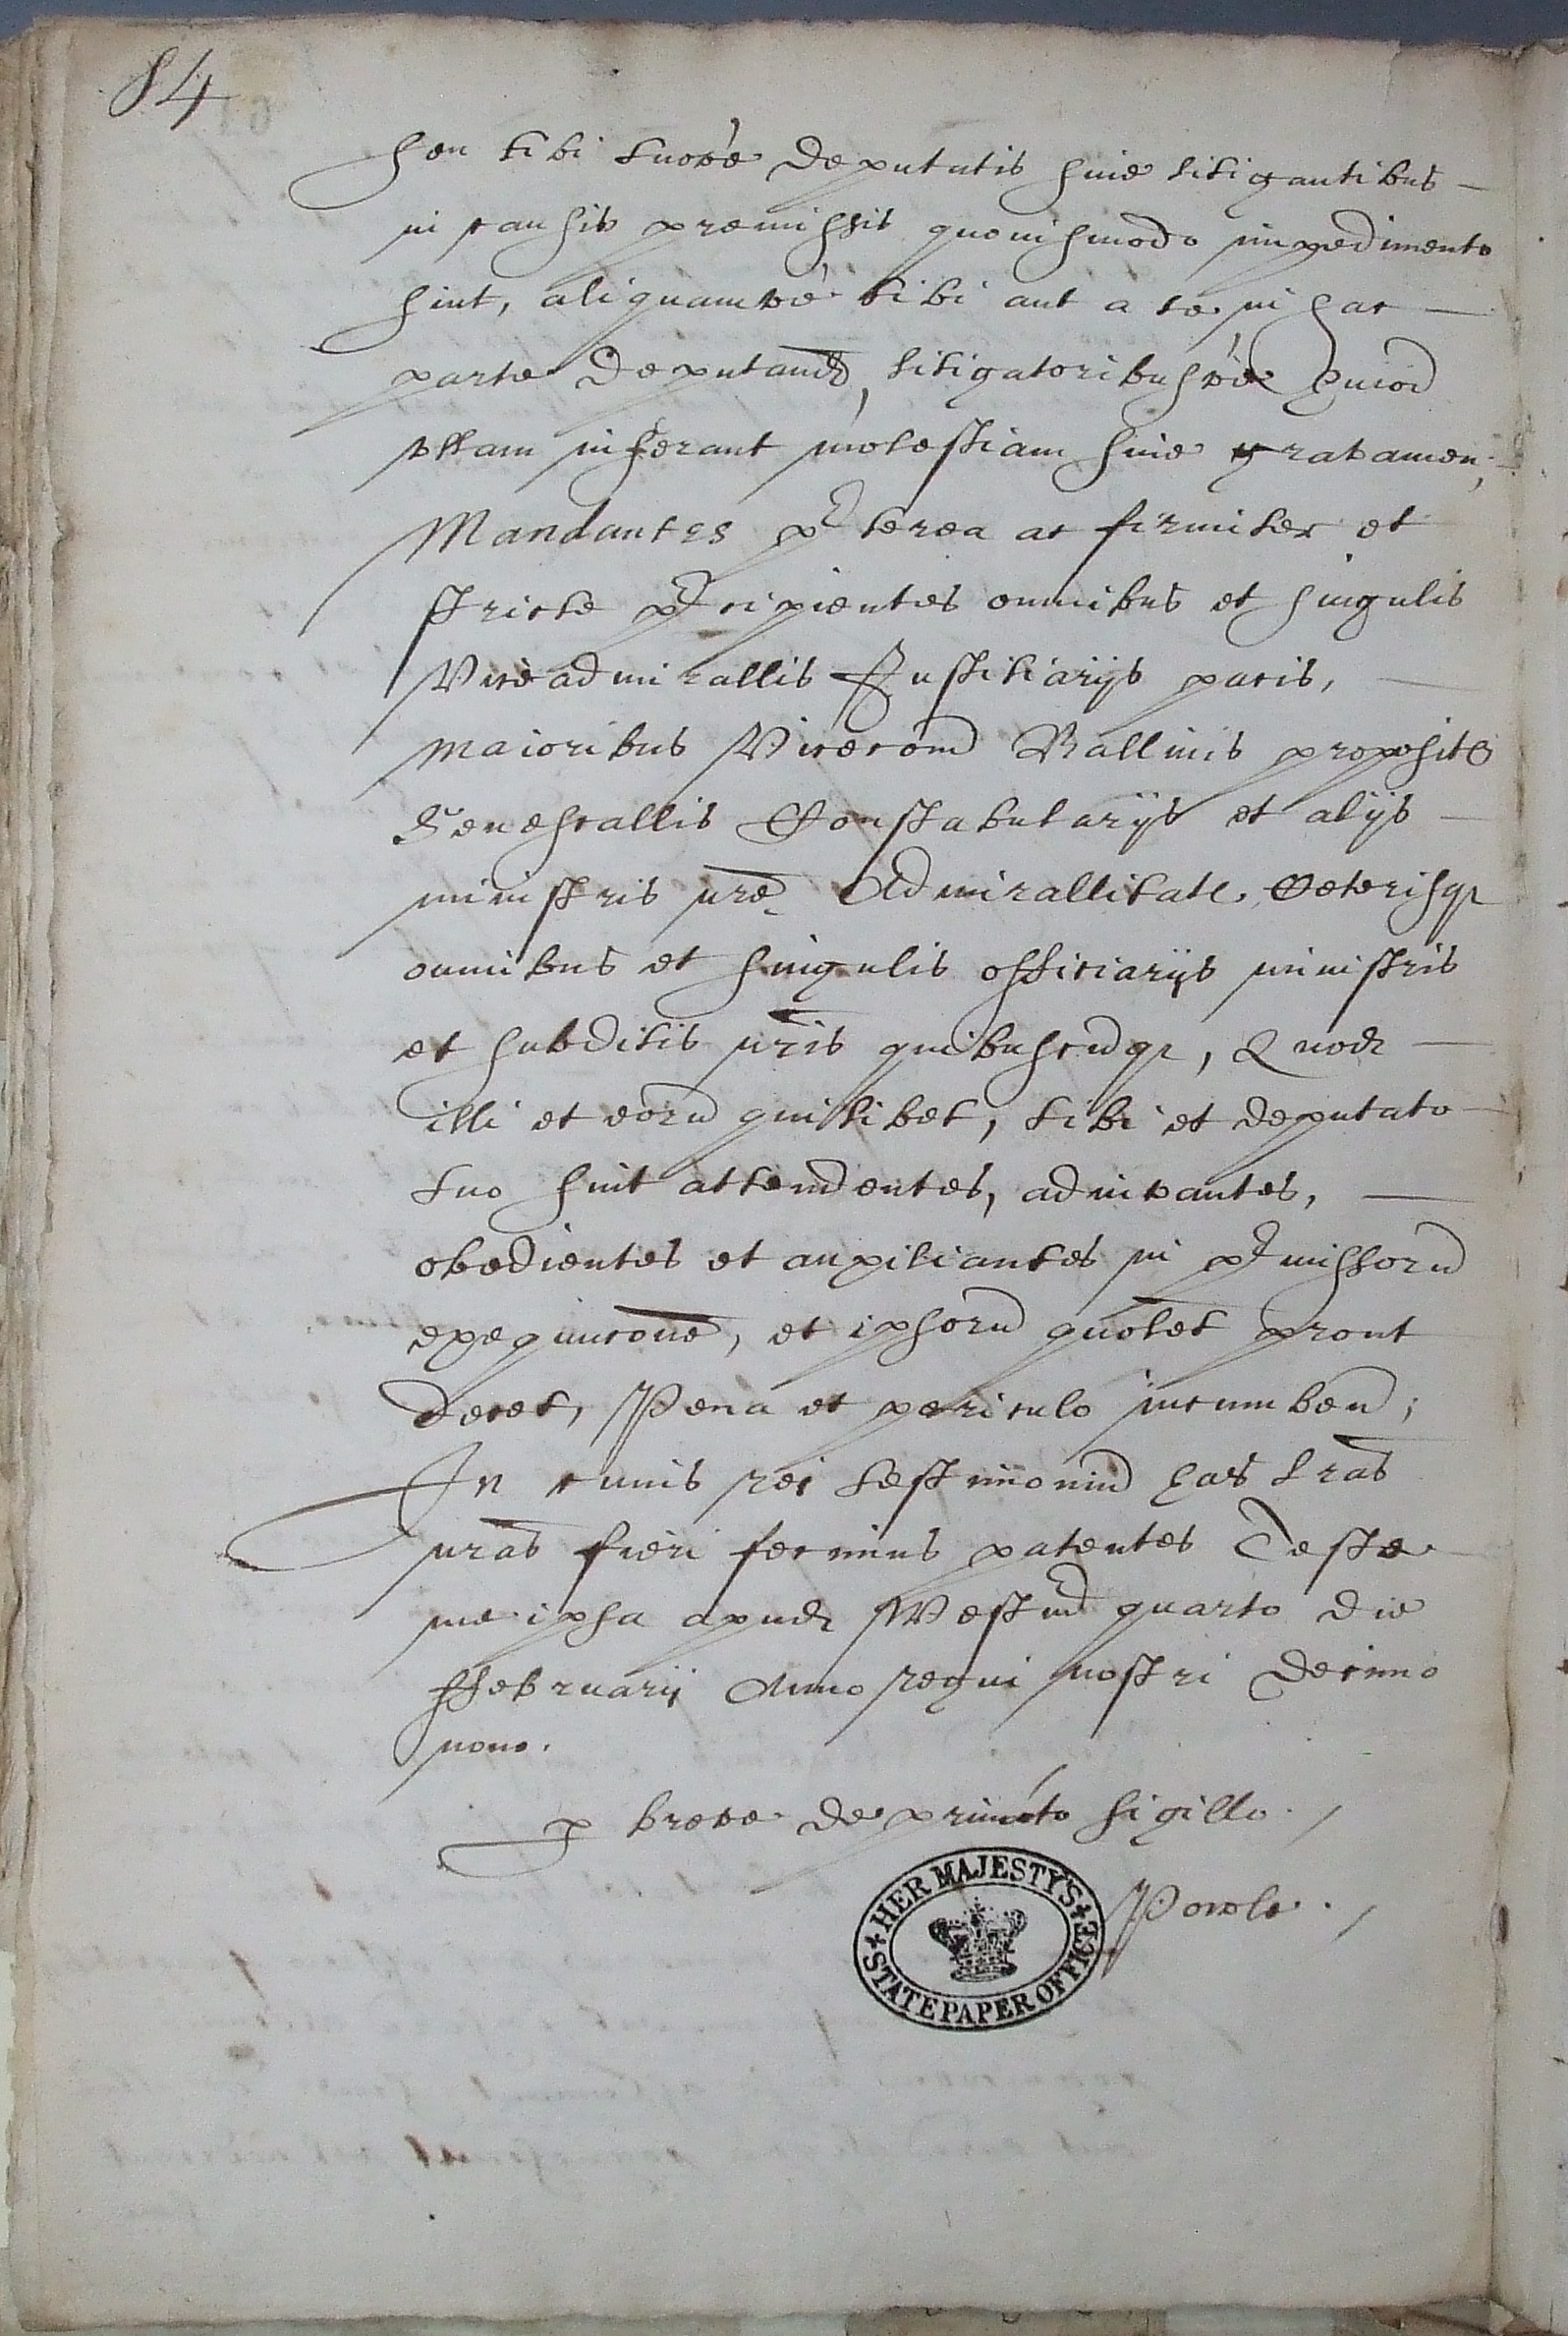 84
seu tibi tuové deputatis sive litigantibus
in causis premissis quovismodo impedimento
sint, aliquamvé tibi aut a te in hac
parte deputand, litigatoribusvé huiod
ullam inferant molestiam sive gravamen;
Mandantes pterea ac firmiter et
stricte pcipientes omnibus et singulis
Viceadmirallis Justitiarijs pacis,
maioribus Vicecom Ballivis prepositis
Senescallis Constabularijs et alijs
ministris nre Admirallitatl Ceterisqz
omnibus et singulis officiarijs ministris
et subditis nris quibuscuqz, Quod
illi et eoru quilibet, tibi et deputato
tuo sint attendentes, adiuvantes,
obedientes et auxiliantes in pmissoru
exequucone, et ipsoru quolet prout
decet, Pena et periculo incumben;
In cuius rei testimoniu has lras
nras fieri fecimus patentes Teste
me ipsa apud Westm quarto die
ffebruarij Anno regni nostri decimo
nono.
p breve de privato sigillo.
Powle.
HER MAJESTY'S STATE PAPER OFFICE